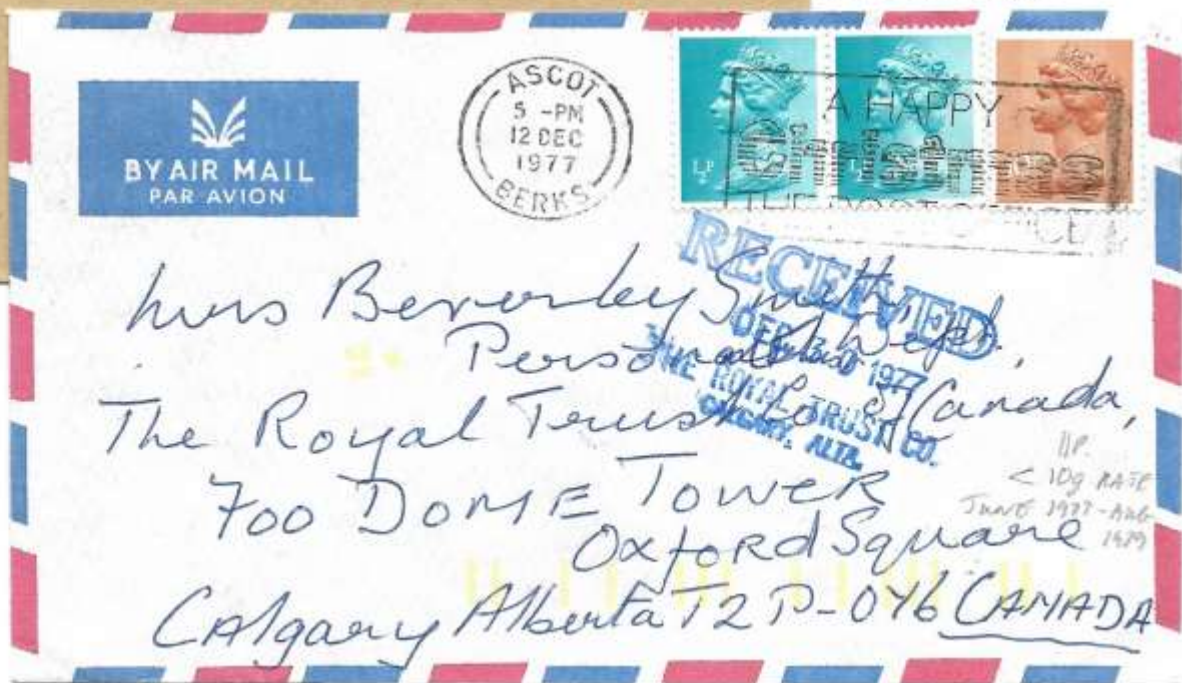 BY AIR MAIL
PAR AVION
ASCOT
5 -PM
12 DEC
1977
BERKS
½P
A HAPPY
THE POST OFFICE
RECEIVED
DEC 30 1977
THE ROYAL TRUST CO.
CALGARY, ALTA.
Mrs Beverley Smith,
Personal Dept.
The Royal Trust Co. of Canada,
700 DOME TOWER
Oxford Square
Calgary Alberta T2P-0Y6 CANADA
11P.
< 10g RATE
JUNE 1977-AUG
1979